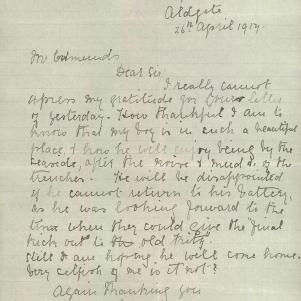 Aldgate
26th April 1917.
Mr Edmunds
Dear Sir
I really cannot
express my gratitude for your letter
of yesterday. How thankful I am to
know that my boy is in such a beautiful
place, & how he will enjoy being by the
seaside, after the noise & mud of the
trenches. He will be disappointed
if he cannot return to his battery,
as he was looking forward to the
time when they could give the "final
kick out" to the old Fritz.
Still I am hoping he will come home.
Very selfish of me is it not?
Again thanking you